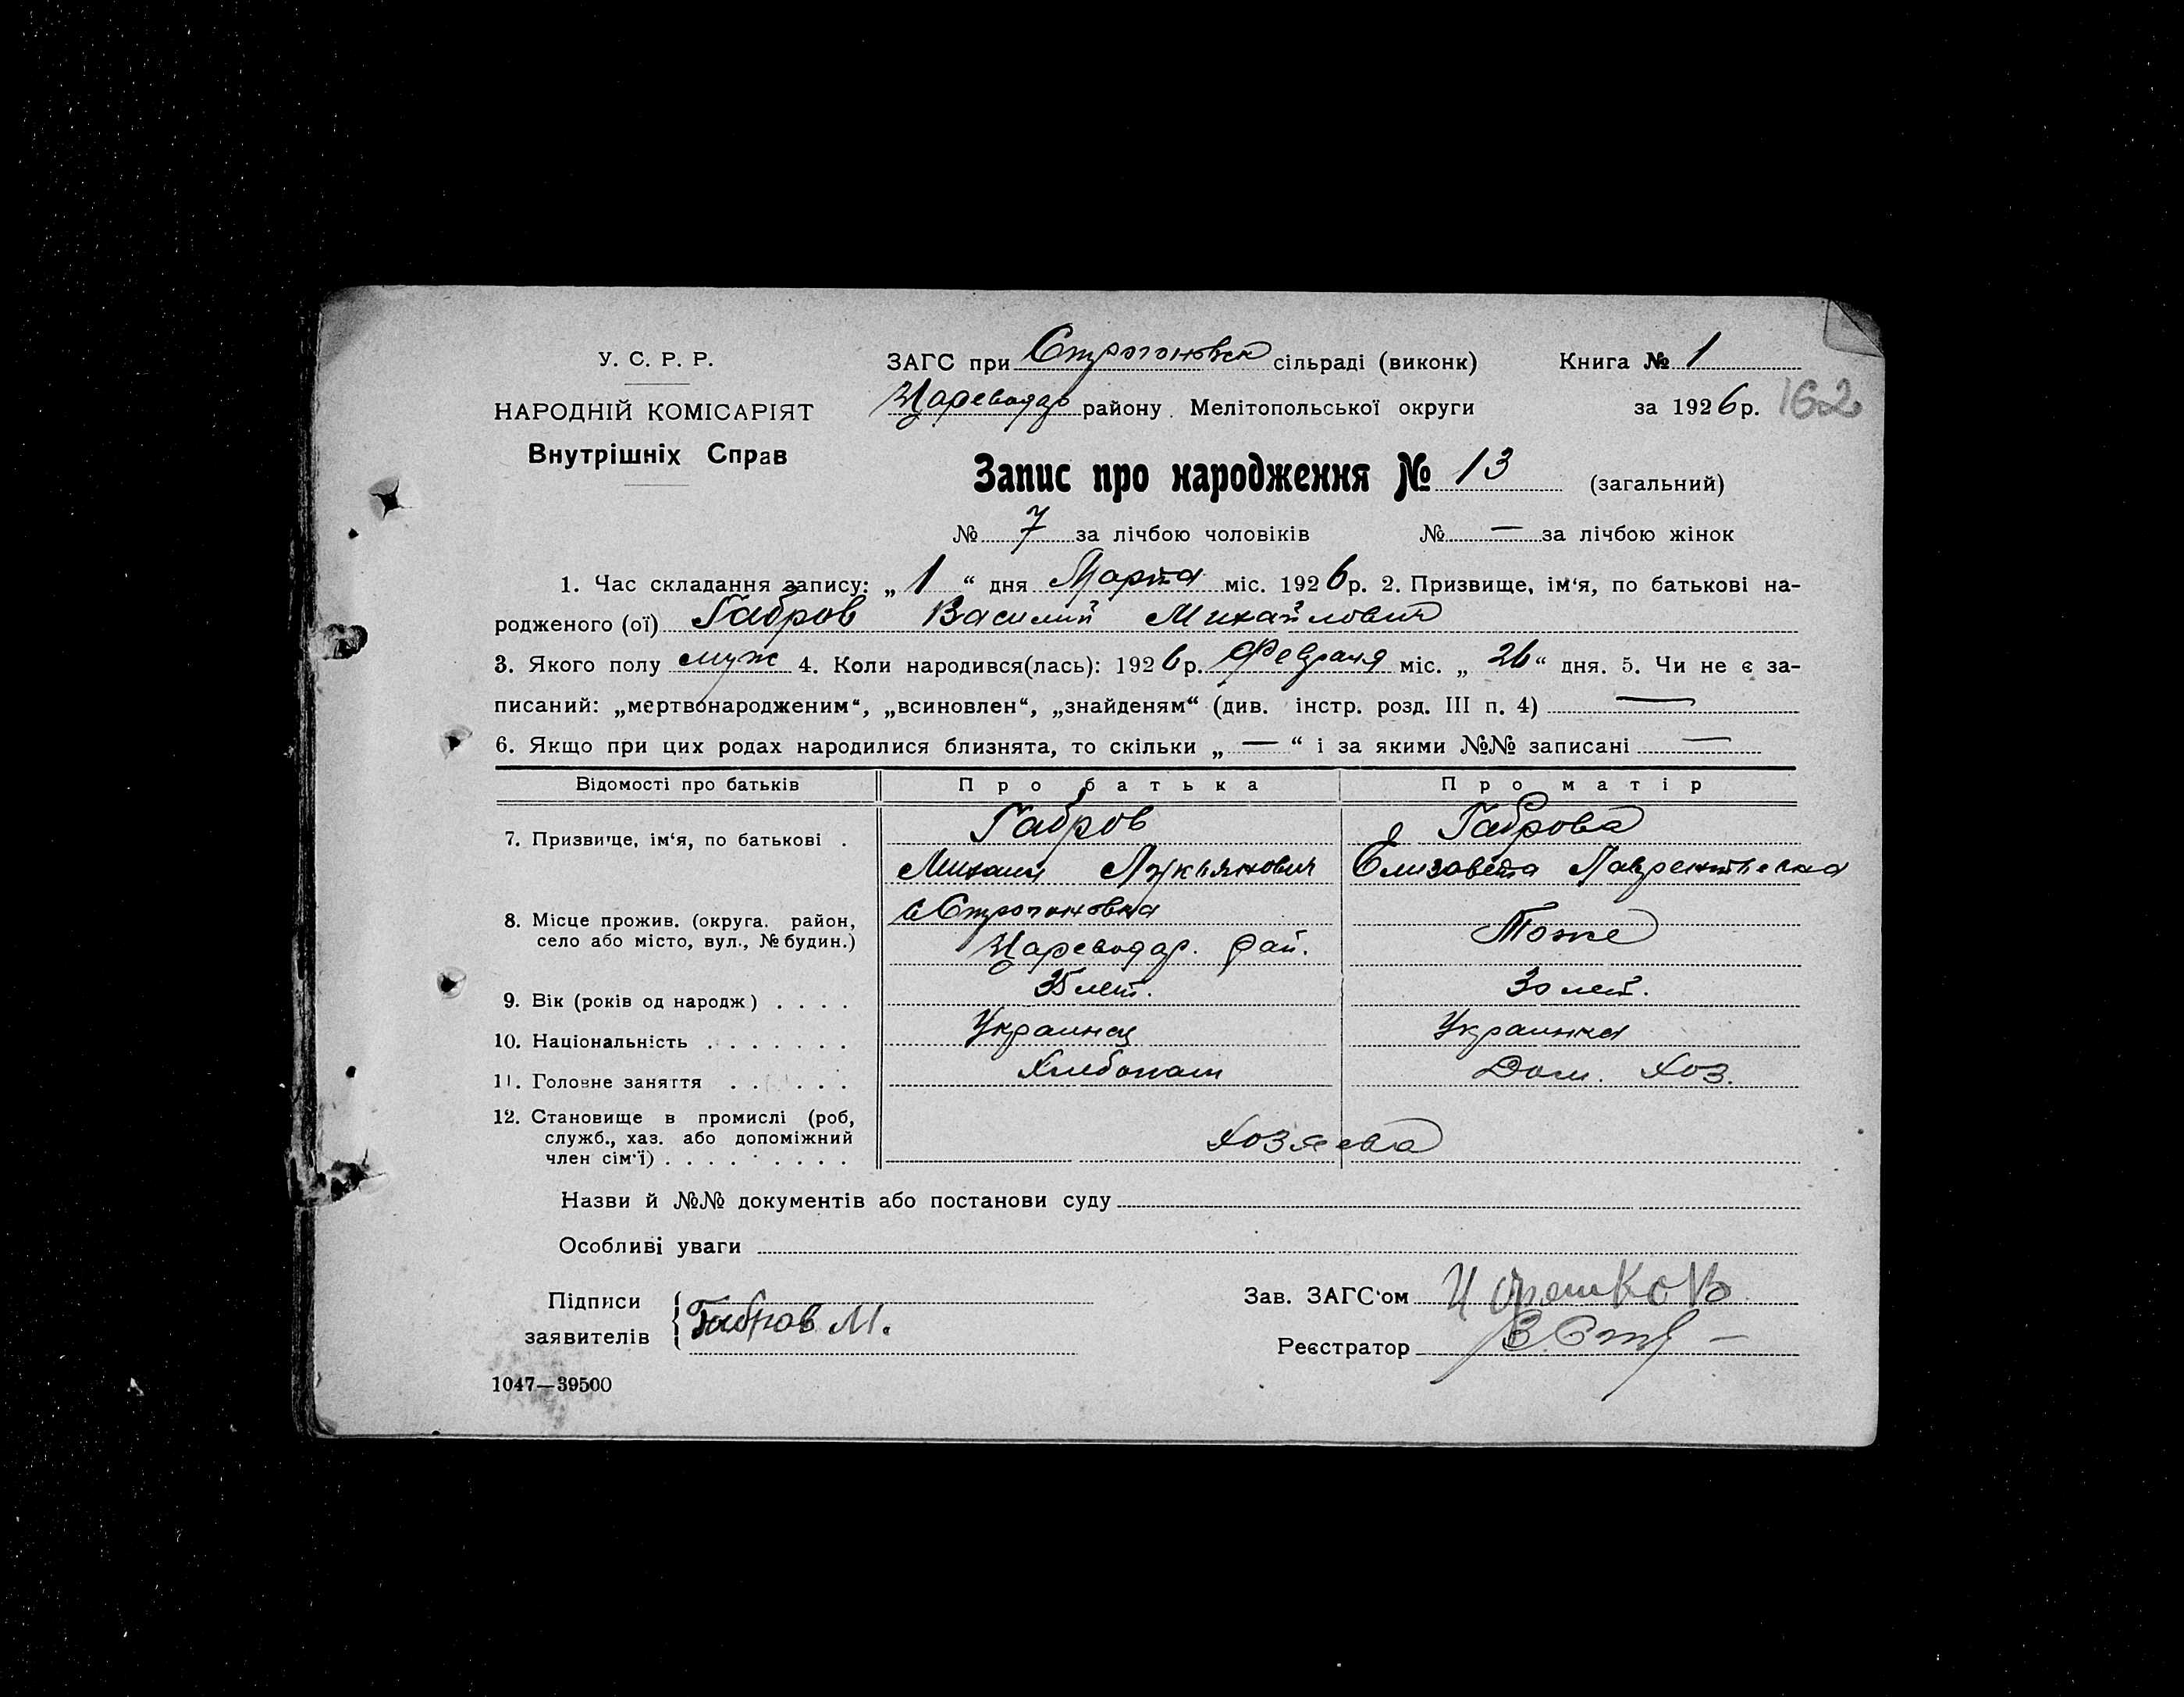 У. С. Р. Р.
НАРОДНІЙ КОМІСАРІЯТ
Внутрішніх Справ
ЗАГС при Строгоновск сільраді (виконк) Книга № 1
Цареводар району. Мелітопольської округи за 1926 р. 162
Запис про народження № 13 (загальний)
№ 7 за лічбою чоловіків № — за лічбою жінок
1. Час складання запису: „ 1 “ дня Марта міс. 1926 р. 2. Призвище, ім‘я, по батькові на-
родженого (ої) Габров Василий Михайлович
3. Якого полу муж 4. Коли народився(лась): 1926 р. Февраля міс. „ 26 “ дня. 5. Чи не є за-
писаний: „мертвонародженим“, „всиновлен“, „знайденям“ (див. інстр. розд. III п. 4) —
6. Якщо при цих родах народилися близнята, то скільки „ — “ і за якими №№ записані —
Відомості про батьків Про батька Про матір
7. Призвище, ім‘я, по батькові . Габров Габрова
Михаил Лукьянович Елизавета Лаврентьевна
8. Місце прожив. (округа. район, село або місто, вул., № будин.) с Строгоновка
Цареводар. рай. Тоже
9. Вік (років од народж) . . . . 35 лет. 30 лет.
10. Національність . . . . . . . Украинец Украинка
11. Головне заняття . . . . . . Хлебопаш Дом. Хоз.
12. Становище в промислі (роб,
служб., хаз. або допоміжний
член сім‘ї) . . . . . . . . . Хозяева
Назви й №№ документів або постанови суду
Особливі уваги
Підписи
заявителів Габров М.
Зав. ЗАГС‘ом
Реєстратор
1047—39500